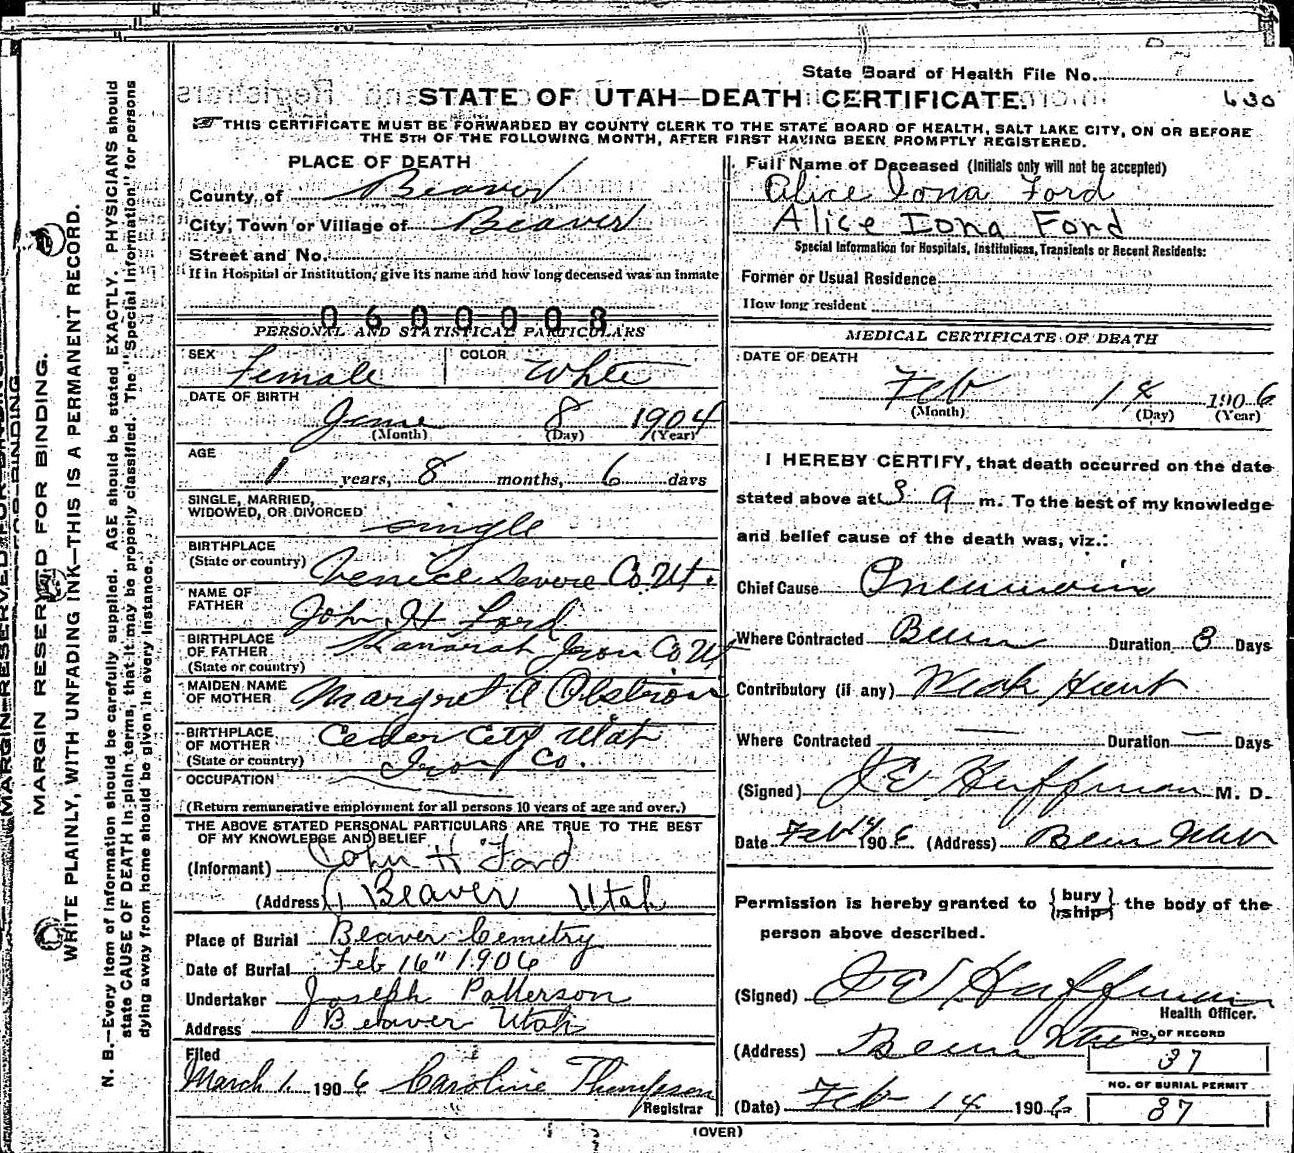 State Board of Health File No.
630
STATE OF UTAH—DEATH CERTIFICATE.
THIS CERTIFICATE MUST BE FORWARDED BY COUNTY CLERK TO THE STATE BOARD OF HEALTH, SALT LAKE CITY, ON OR BEFORE
THE 5TH OF THE FOLLOWING MONTH, AFTER FIRST HAVING BEEN PROMPTLY REGISTERED.
MARGIN RESERVED FOR BINDING.
MARGIN RESERVED FOR BINDING.
WRITE PLAINLY, WITH UNFADING INK—THIS IS A PERMANENT RECORD.
N. B.—Every item of information should be carefully supplied. AGE should be stated EXACTLY. PHYSICIANS should
state CAUSE OF DEATH in plain terms, that it may be properly classified. The "Special Information" for persons
dying away from home should be given in every instance.
PLACE OF DEATH
County of Beaver
City, Town or Village of Beaver
Street and No.
If in Hospital or Institution, give its name and how long deceased was an inmate
0600008
PERSONAL AND STATISTICAL PARTICULARS
SEX Female COLOR White
DATE OF BIRTH
June 8 1904
(Month) (Day) (Year)
AGE
1 years, 8 months, 6 days
SINGLE, MARRIED,
WIDOWED, OR DIVORCED single
BIRTHPLACE
(State or country) Venice Severe Co. Ut.
NAME OF
FATHER John H Ford
BIRTHPLACE
OF FATHER
(State or country) Kanarah Iron Co Ut
MAIDEN NAME
OF MOTHER Margret A
BIRTHPLACE
OF MOTHER
(State or country) Cedar City Utah
Iron Co.
OCCUPATION
(Return remunerative employment for all persons 10 years of age and over.)
THE ABOVE STATED PERSONAL PARTICULARS ARE TRUE TO THE BEST
OF MY KNOWLEDGE AND BELIEF
(Informant) John H Ford
(Address) Beaver Utah
Place of Burial Beaver Cemetry
Date of Burial Feb 16" 1906
Undertaker Joseph Patterson
Address Beaver Utah
Filed
March 1 1906 Caroline Thompson
Registrar
Full Name of Deceased (Initials only will not be accepted)
Alice Iona Ford
Alice Iona Ford
Special Information for Hospitals, Institutions, Transients or Recent Residents:
Former or Usual Residence
How long resident
MEDICAL CERTIFICATE OF DEATH
DATE OF DEATH
Feb 14 1906
(Month) (Day) (Year)
I HEREBY CERTIFY, that death occurred on the date
stated above at 3 a m. To the best of my knowledge
and belief cause of the death was, viz.:
Chief Cause Pneumonia
Where Contracted Beaver Duration 8 Days
Contributory (if any) Weak Heart
Where Contracted — Duration — Days
(Signed) J E Huffman M. D.
Date Feb 14 1906 (Address) Beaver Utah
Permission is hereby granted to {bury / ship} the body of the
person above described.
(Signed) J E Huffman
Health Officer.
(Address) Beaver Utah
NO. OF RECORD
37
NO. OF BURIAL PERMIT
(Date) Feb 14 1906 87
(OVER)